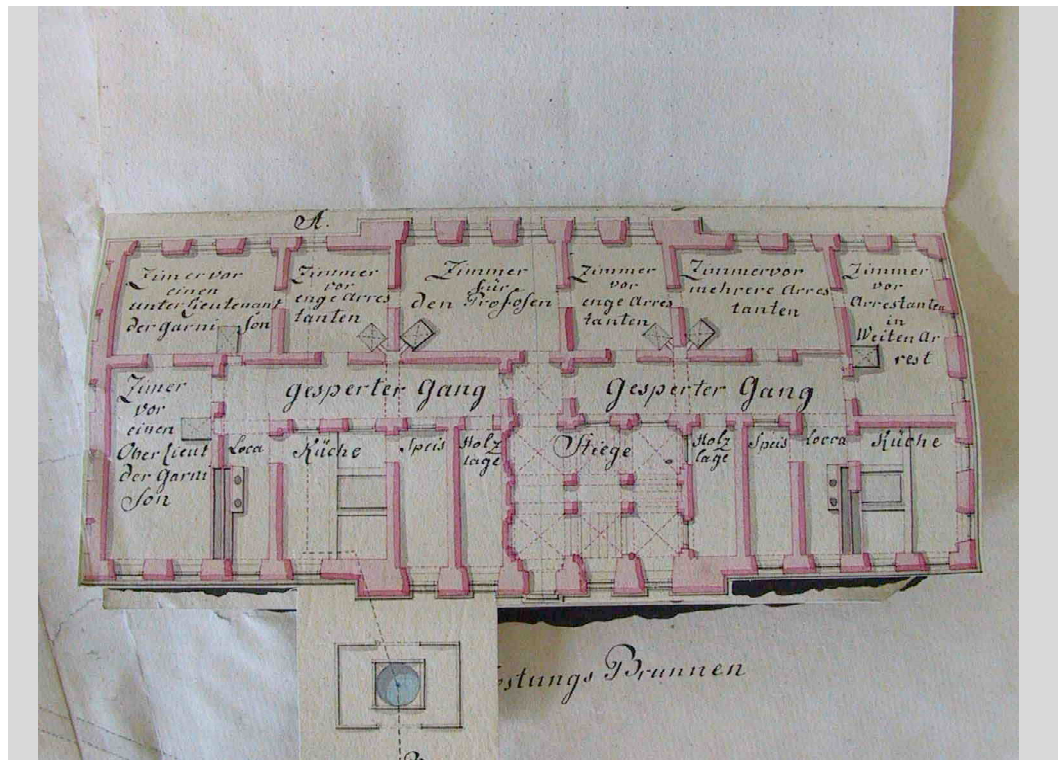 A.
Zimer vor
einen
unter Lieutenant
der Garni son
Zimmer
vor
enge Arres
tanten
Zimmer
für
den Profosen
Zimmer
vor
enge Arres
tanten
Zimmer vor
mehrere Arres
tanten
Zimmer
vor
Arrestanten
in
Weiten Ar
rest
Zimer
vor
einen
Ober Lieut
der Garni
son
gesperter Gang
Gesperter Gang
Loca
Küche
Speis
Holz
lage
Stiege
Holz
lage
Speis
Locca
Küche
estungs Brunnen